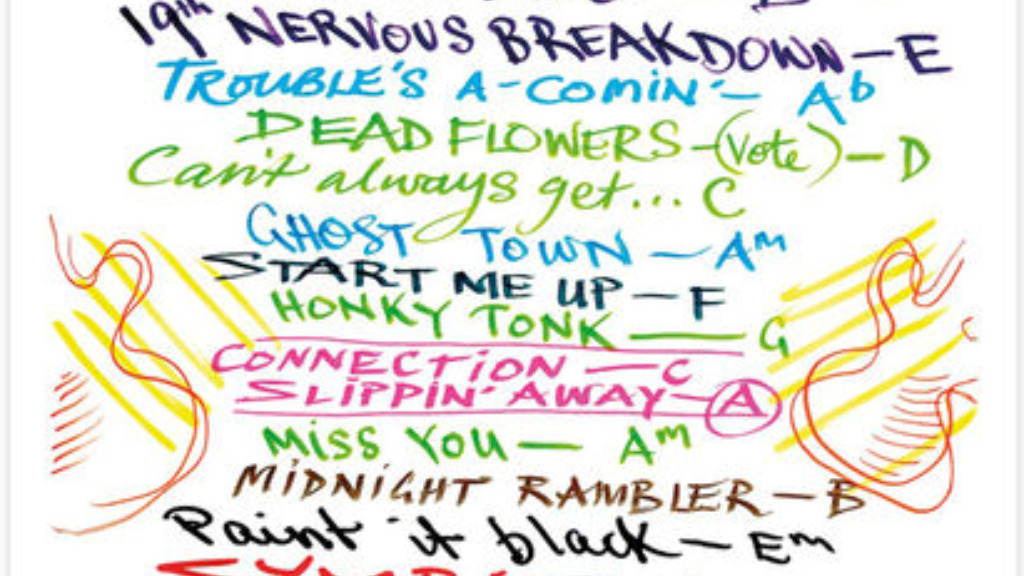 19th NERVOUS BREAKDOWN — E
TROUBLE'S A-COMIN' — Ab
DEAD FLOWERS — (Vote) — D
Can't always get... C
GHOST TOWN — Am
START ME UP — F
HONKY TONK — G
CONNECTION — C
SLIPPIN' AWAY — A
MISS YOU — Am
MIDNIGHT RAMBLER — B
Paint it black — Em